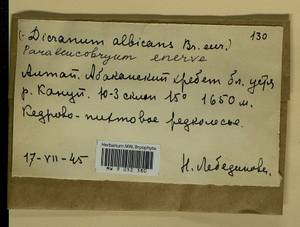 (Dicranum albicans Br. eur.) 130
Paraleucobryum enerve
Алтай. Абаканский хребет бл. устья
р. Ю-З склон 15° 1650 м.
Кедрово-пихтовое редколесье.
17-VII-45 Н. Лебединова.
Herbarium MW, Bryophyta
MW 9 032 380